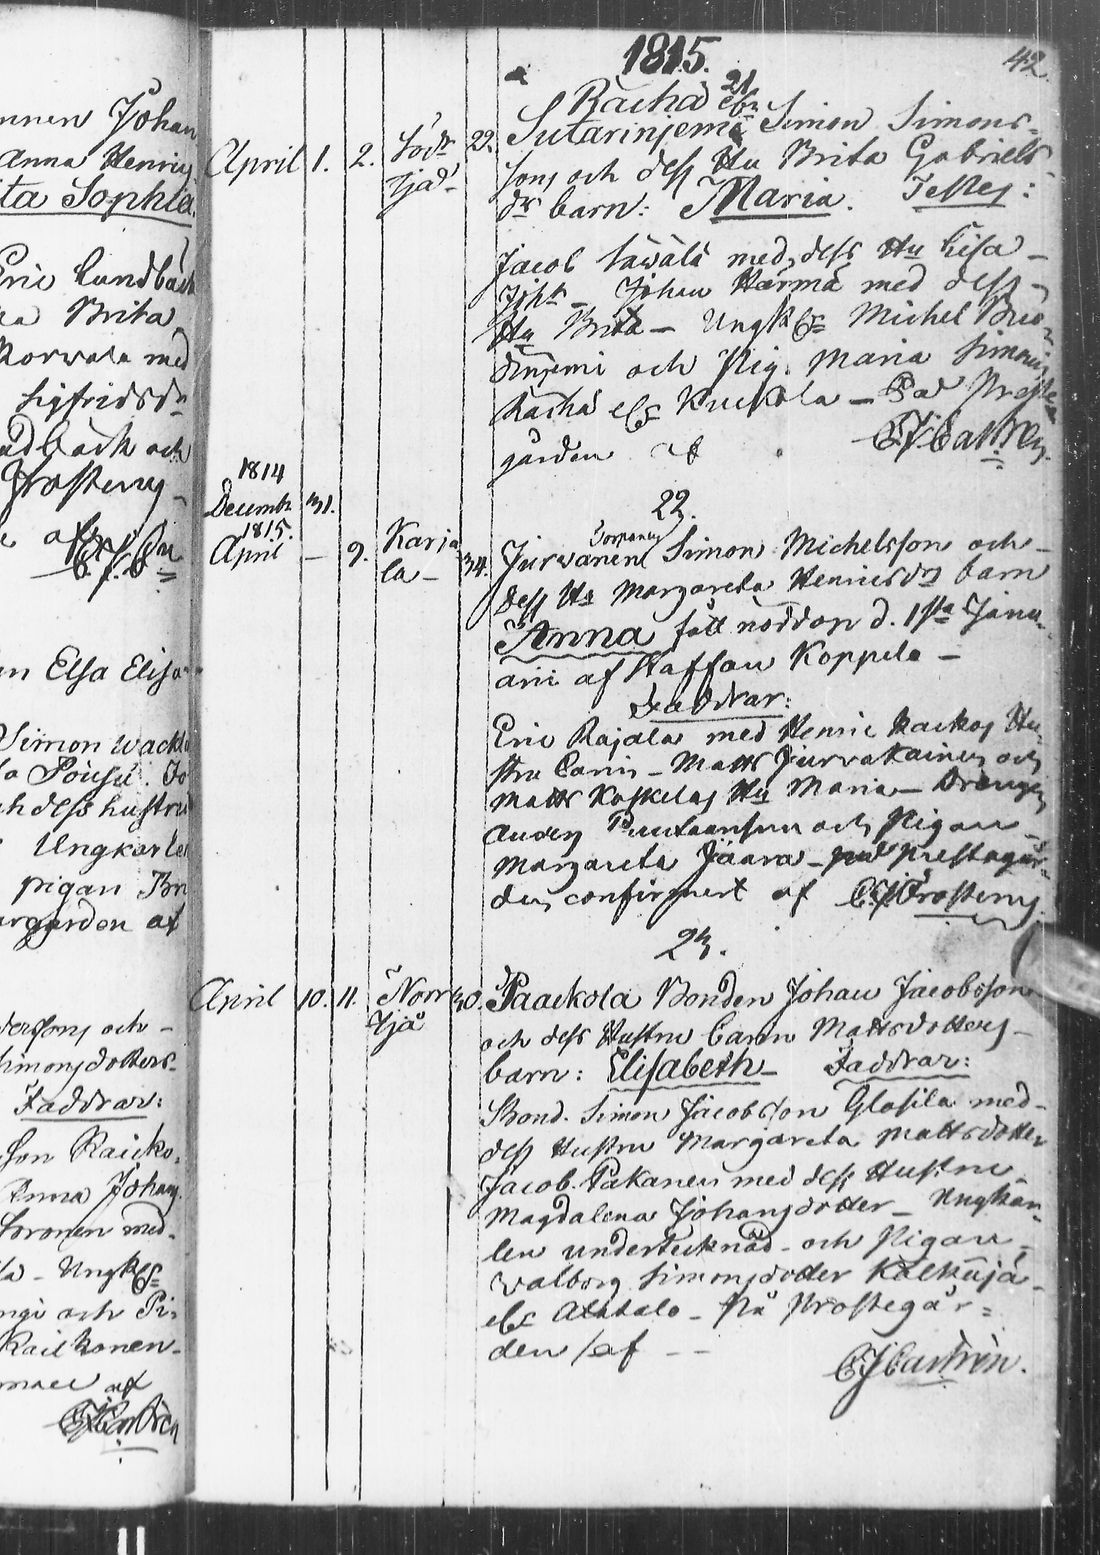 nnen Johan
Anna Henrics
ta Sophia.
Eric Lundbäck
Brita
Korwala med
Sigfridsdr
ndbäck och
Frosterus
af
n Elsa Elisa
Simon Wackla
la Pöüsü. Jo
ch dess hustru
Ungkarle
pigan Bri
rgården af
dersons och
Simonsdotters
Faddrar:
son Raicko
Anna Johans
Soronen med
la - Ungk
ngi och Pi
Raikkonen
af
Castrén
1815.
42
21
Rächä
April 1. 2. Södr Tjä 22. Sutarinjemi Simon Simons-
sons och dess Hu Brita Gabriels
dr barn: Maria. Testes:
Jacob Säwälä med dess Hu Lisa
Johan Härmä med dess
Hu Brita - Ungk Michel
och Pig. Maria Simons
Rächä els Kuckola - Præste
gården af CJCastrén
22.
1814
Decembr 31.
1815.
April - 9. Karja la - 34. Jurwanen Simon Michelsson och
dess Hu Margareta Henricsdrs barn
Anna fått nöddop d. 1sta Janu-
arii af Staffan Koppelo -
Faddrar:
Eric Rajala med Henric Raickos Hu
stru Carin - Matts Jurrakainen och
Matts Koskelas Hu Maria - Drengen
Anders och Pigan
Margareta Jäära - på Prestegår-
den, confirmert af CJFrosterus
23.
April 10. 11. Norr Tjä 40. Paackola Bonden Johan Jacobsson
och dess Hustru Carin Mattsdotters
barn: Elisabeth - Faddrar:
Bond. Simon Jacobsson Glosila med
dess Hustru Margareta Mattsdotter
Jacob Pakanen med dess Hustru
Magdalena Johansdotter - Ungkar-
len undertecknad - och Pigan
Walborg Simonsdotter
els Alatalo - På Prostegår-
den /af
CJCastrén.